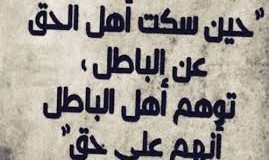 "حين سكت أهل الحق
عن الباطل ،
توهم أهل الباطل
أنهم على حق"